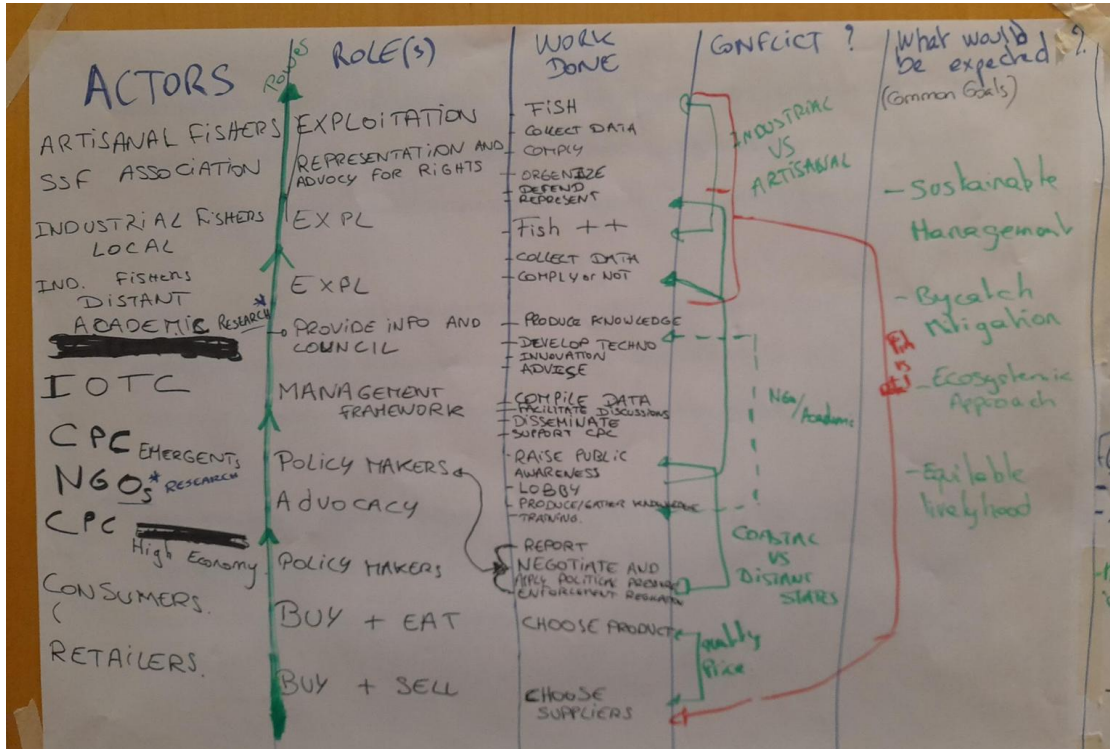 ACTORS
ARTISANAL FISHERS
SSF ASSOCIATION
INDUSTRIAL FISHERS
LOCAL
IND. FISHERS
DISTANT
ACADEMIC RESEARCH*
IOTC
CPC EMERGENTS
NGOs* RESEARCH
CPC
High Economy
CONSUMERS.
RETAILERS.
POWER
ROLE(S)
EXPLOITATION
REPRESENTATION AND
ADVOCY FOR RIGHTS
EXPL
EXPL
PROVIDE INFO AND
COUNCIL
MANAGEMENT
FRAMEWORK
POLICY MAKERS
ADVOCACY
POLICY MAKERS
BUY + EAT
BUY + SELL
WORK
DONE
FISH
COLLECT DATA
- COMPLY
- ORGENIZE
- DEFEND
- REPRESENT
- Fish ++
- COLLECT DATA
- COMPLY or NOT
- PRODUCE KNOWLEDGE
- DEVELOP TECHNO
- INNOVATION
- ADVISE
- COMPILE DATA
- FACILITATE DISCUSSIONS
- DISSEMINATE
- SUPPORT CPC
- RAISE PUBLIC
AWARENESS
- LOBBY
- PRODUCE/GATHER KNOWLEDGE
- TRAINING.
- REPORT
NEGOTIATE AND
APPLY POLITICAL PRESSURE
ENFORCEMENT REGULATION
CHOOSE PRODUCT
CHOOSE
SUPPLIERS
CONFLICT ?
INDUSTRIAL
VS
ARTISANAL
NGO/Academic
COASTAL
VS
DISTANT
STATES
quality
Price
What would
be expected ?
(Common Goals)
- Sustainable
Management
- Bycatch
Mitigation
- Ecosystemic
Approach
- Equitable
livelyhood